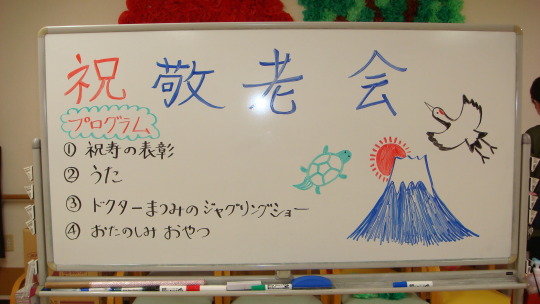 祝 敬老会
プログラム
① 祝寿の表彰
② うた
③ ドクターまつみのジャグリングショー
④ おたのしみ おやつ